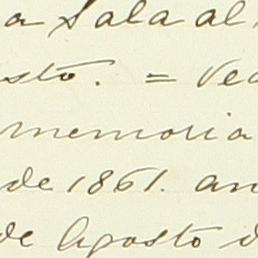 a Sala al
sto. = Ved
memoria
de 1861. an
de Agosto d